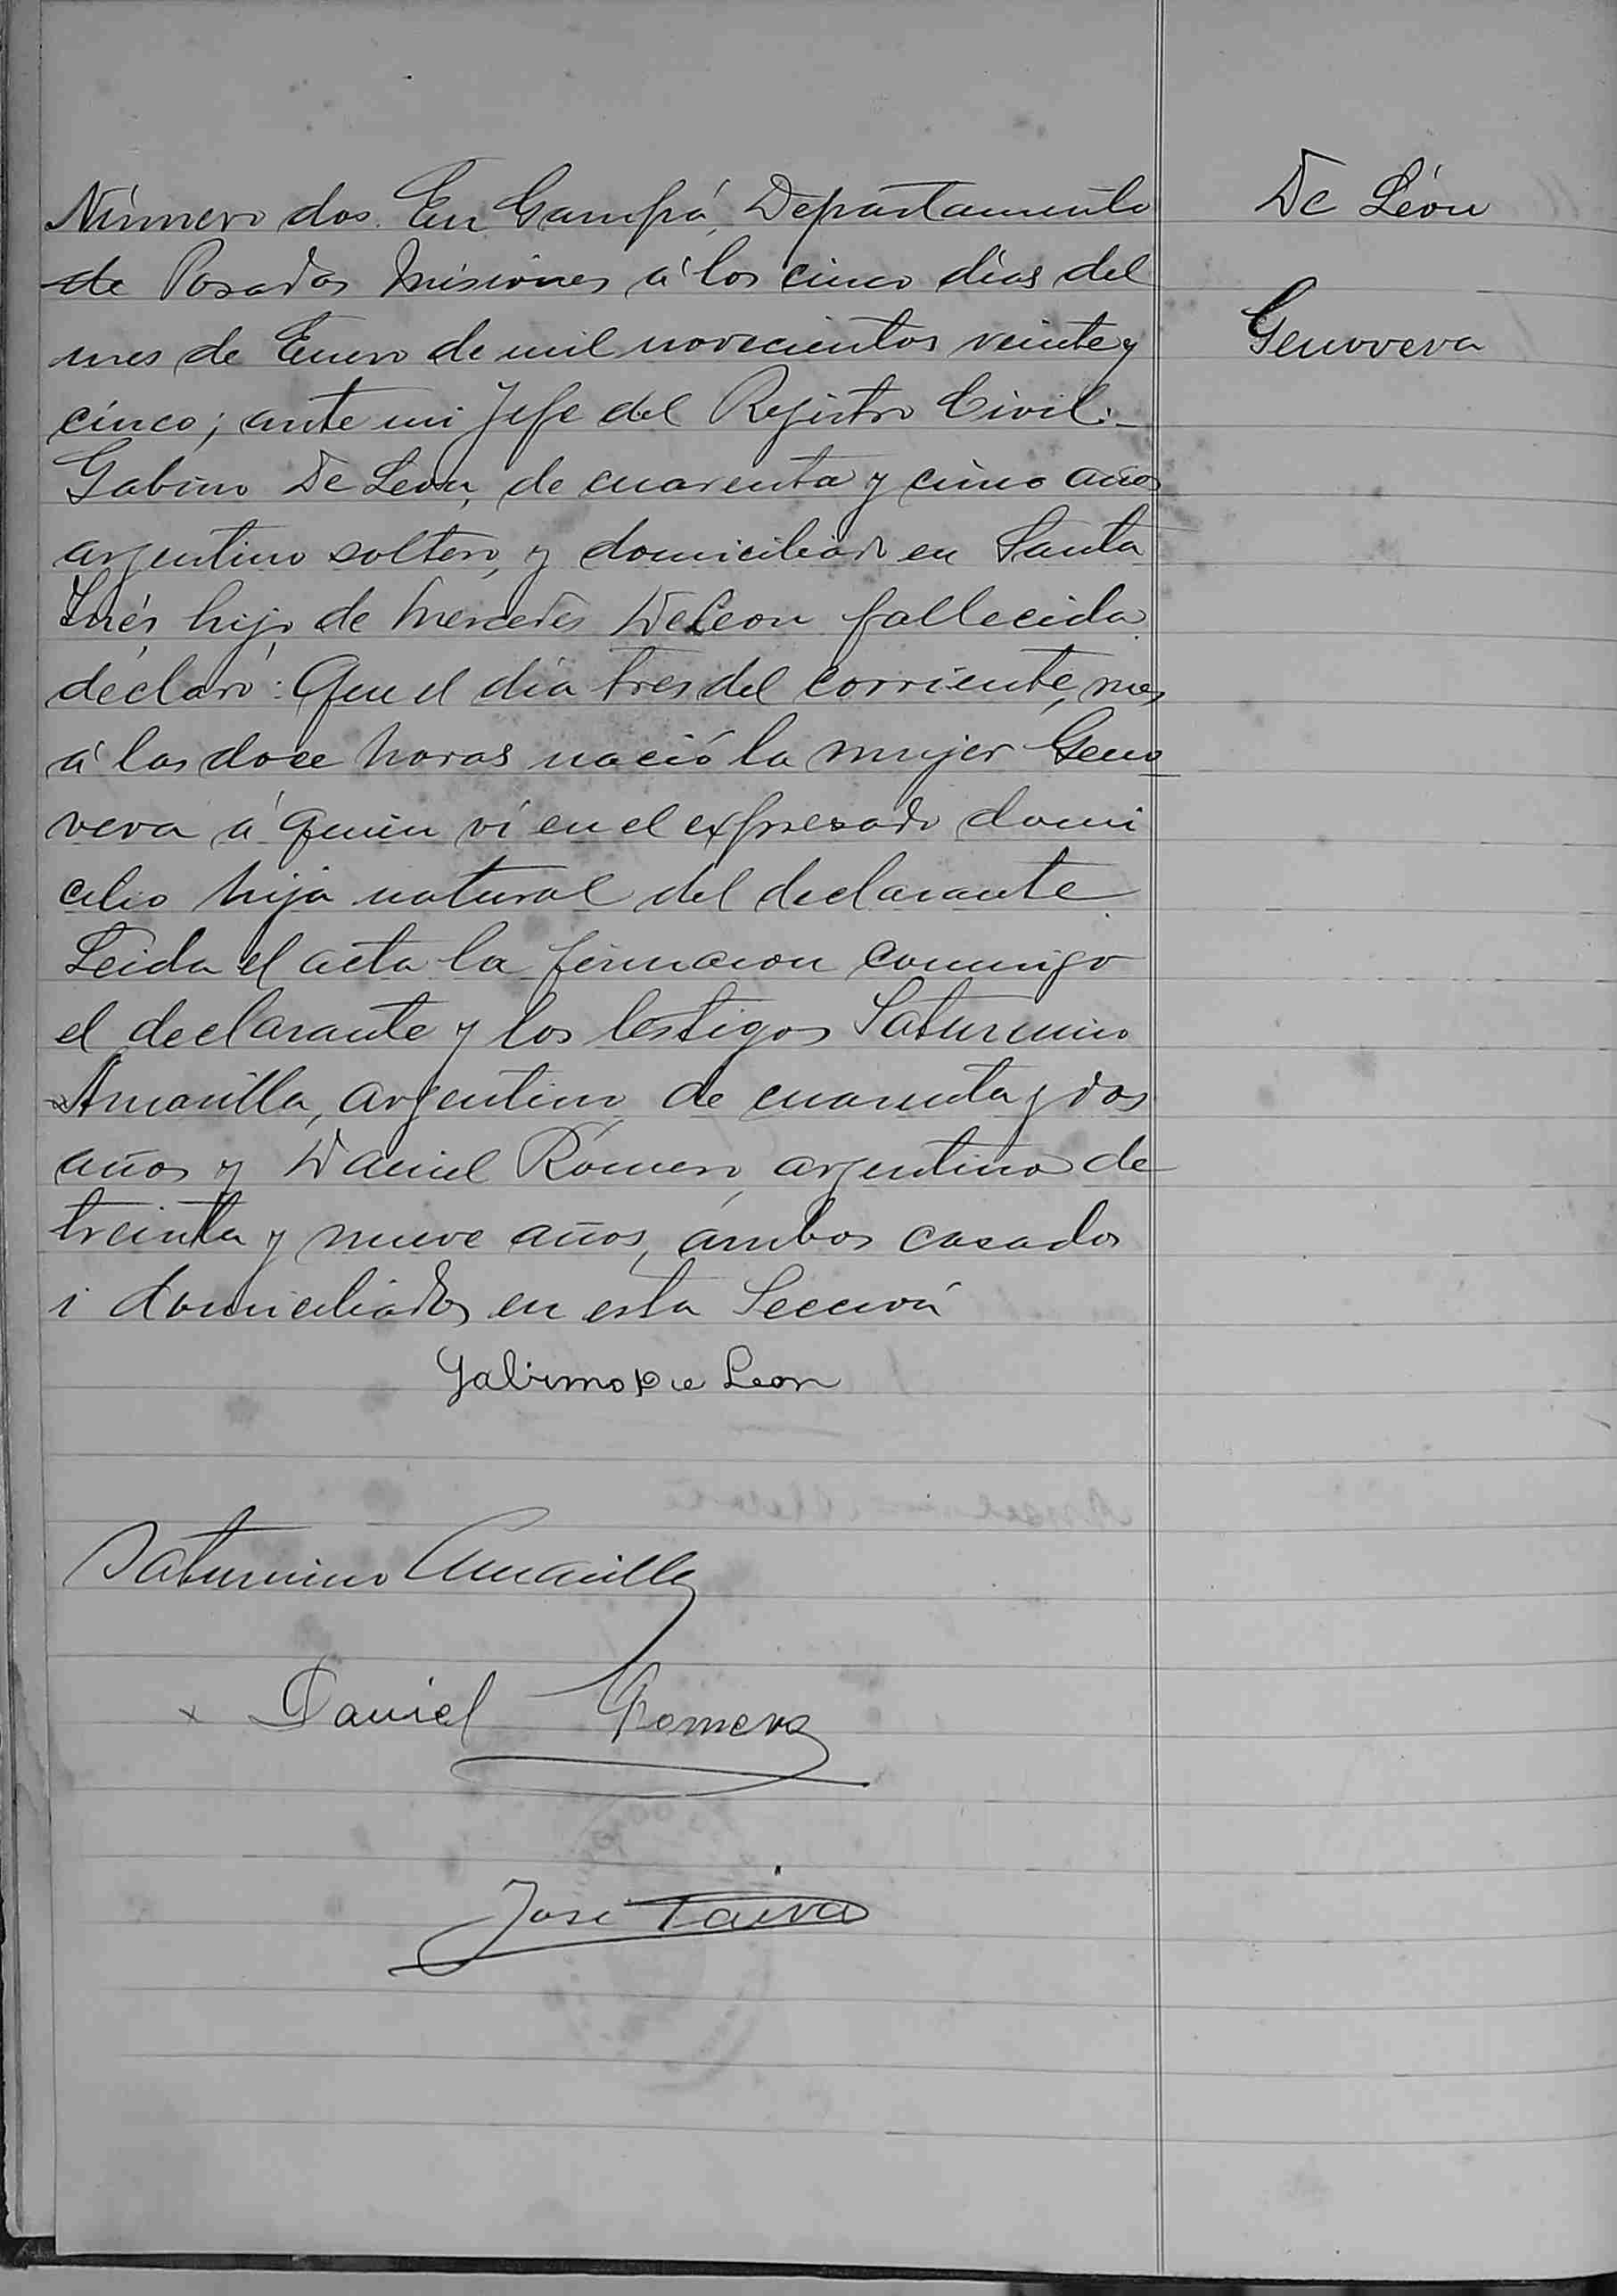 Número dos. En Garupá, Departamento
de Posadas Misiones á los cinco días del
mes de Enero de mil novecientos veinte y
cinco; ante mi Jefe del Rejistro Civil:
Gabino De Leon, de cuarenta y cinco años
argentino soltero, y domiciliado en Santa
Inés, hijo de Mercedes De Leon fallecida
declaró: Que el día tres del corriente, mes
á las doce horas nació la mujer Geno
veva á quien ví en el expresado domi
cilio hija natural del declarante
Leida el acta la firmaron conmigo
el declarante y los testigos Saturnino
Amarilla, argentino, de cuarenta y dos
años y Daniel Romero, argentino de
treinta y nueve años, ámbos casados
i domiciliados en esta Sección
Gabino De Leon
Saturnino Amarilla
x Daniel Romero
José Paiva
De León
Genoveva